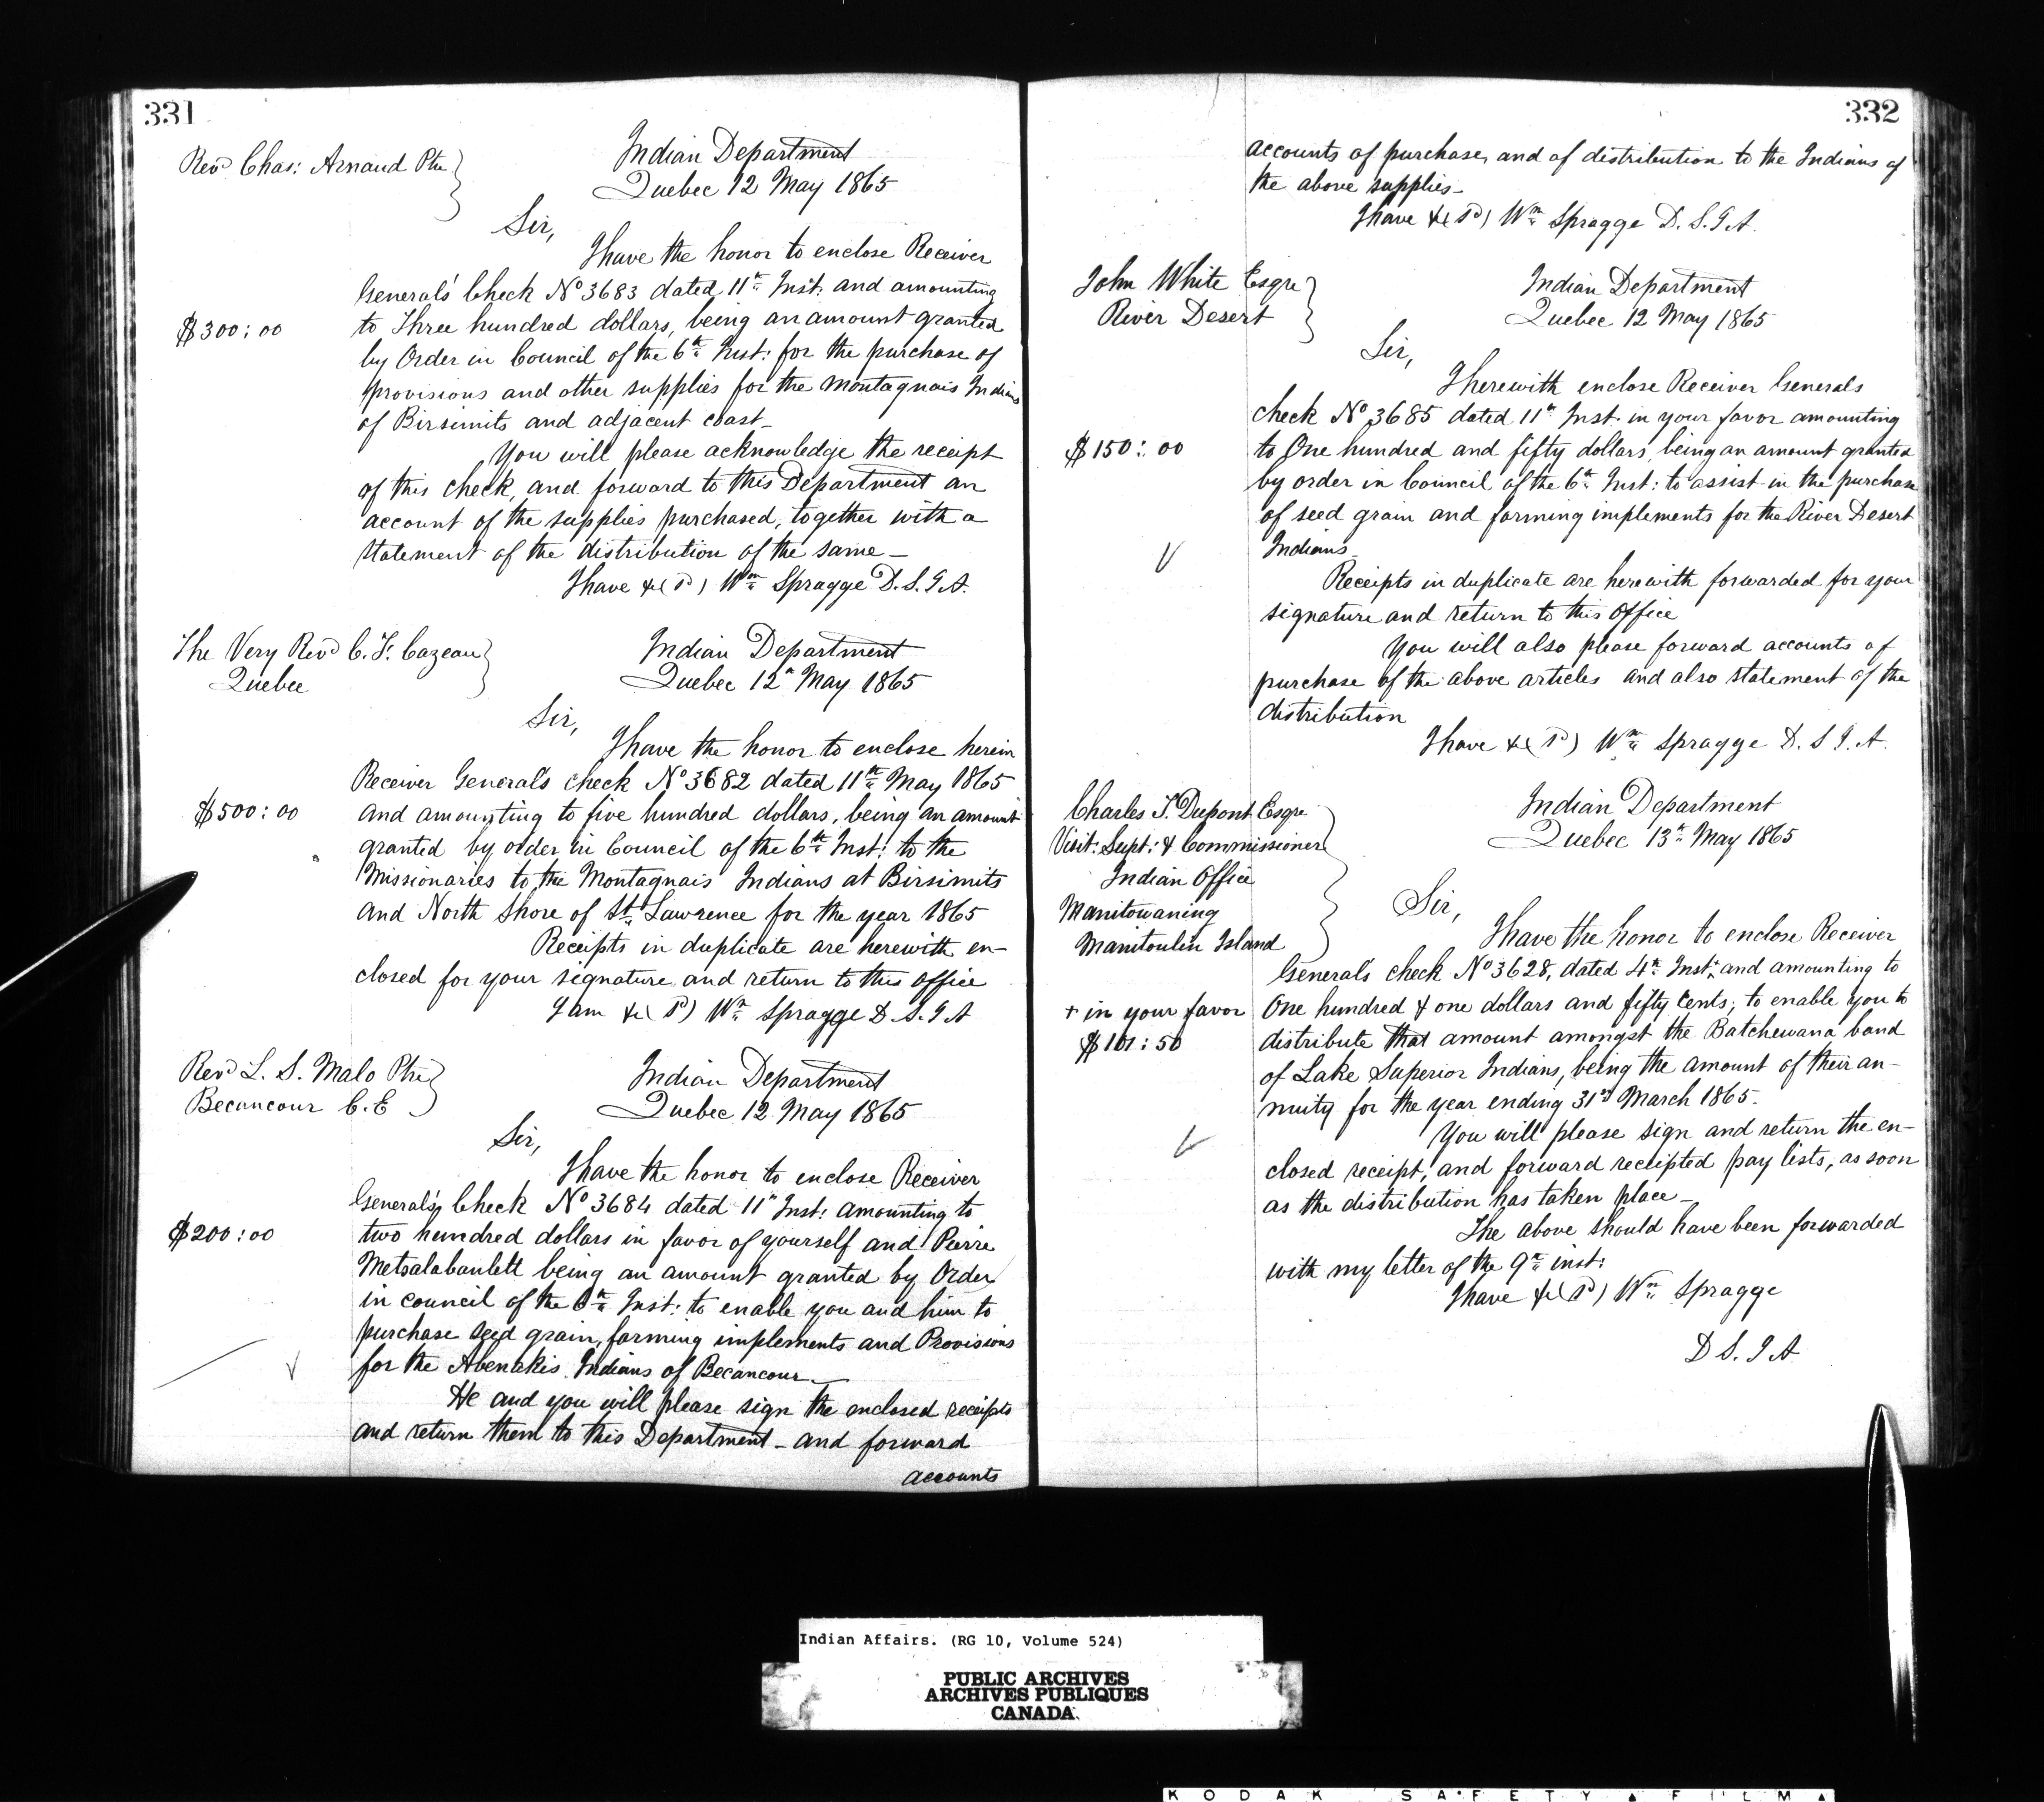 331
Revd Chas: Arnaud Ptre
Indian Department
Quebec 12 May 1865
Sir,
I have the honor to enclose Receiver
General's Check No 3683 dated 11th Inst: and amounting
$300:00
to Three hundred dollars, being an amount granted
by Order in Council of the 6th Inst: for the purchase of
provisions and other supplies for the Montagnais Indians
of Birsimits and adjacent coast_
You will please acknowledge the receipt
of this check, and forward to this Department an
account of the supplies purchased, together with a
statement of the distribution of the same_
I have &c (Sd) Wm Spragge D.S.I.A.
The Very Revd C. F. Cazeau
Quebec
Indian Department
Quebec 12th May 1865
Sir,
I have the honor to enclose herein
Receiver General's check No 3682 dated 11th May 1865
$500:00
and amounting to five hundred dollars, being an amount
granted by order in Council of the 6th Inst: to the
Missionaries to the Montagnais Indians at Birsimits
and North Shore of St. Lawrence for the year 1865
Receipts in duplicate are herewith en-
closed for your signature and return to this office
I am &c (Sd) Wm Spragge D.S.I.A
Revd L. S. Malo Ptre
Becancour C.E
Indian Department
Quebec 12 May 1865
Sir,
I have the honor to enclose Receiver
General's Check No 3684 dated 11th Inst: amounting to
$200:00
two hundred dollars in favor of yourself and Pierre
Metsalabanlett being an amount granted by Order
in council of the 6th Inst: to enable you and him to
purchase seed grain, farming implements and Provisions
for the Abenakis Indians of Becancour_
He and you will please sign the enclosed receipts
and return them to this Department_ and forward
accounts
332
accounts of purchase, and of distribution to the Indians of
the above supplies_
I have &c (Sd) Wm Spragge D.S.I.A.
John White Esqre
River Desert
Indian Department
Quebec 12 May 1865
Sir,
I herewith enclose Receiver Generals
check No 3685 dated 11th Inst. in your favor amounting
$150:00
to One hundred and fifty dollars, being an amount granted
by order in Council of the 6th Inst: to assist in the purchase
of seed grain and farming implements for the River Desert
Indians_
Receipts in duplicate are herewith forwarded for your
signature and return to this Office
You will also please forward accounts of
purchase of the above articles and also statement of the
distribution
I have &c (Sd) Wm Spragge D.S I.A.
Charles T. Dupont Esqre
Visit: Supt: & Commissioner
Indian Office
Manitowaning
Manitoulin Island
Indian Department
Quebec 13th May 1865
Sir,
I have the honor to enclose Receiver
General's check No 3628, dated 4th Inst: and amounting to
+ in your favor
One hundred & one dollars and fifty Cents; to enable you to
$101:50
distribute that amount amongst the Batchewana band
of Lake Superior Indians, being the amount of their an-
nuity for the year ending 31st March 1865.
You will please sign and return the en-
closed receipt, and forward receipted pay lists, as soon
as the distribution has taken place_
The above should have been forwarded
with my letter of the 9th inst:
I have &c (Sd) Wm Spragge
D S. I A.
Indian Affairs. (RG 10, Volume 524)
PUBLIC ARCHIVES
ARCHIVES PUBLIQUES
CANADA
KODAK SAFETY FILM